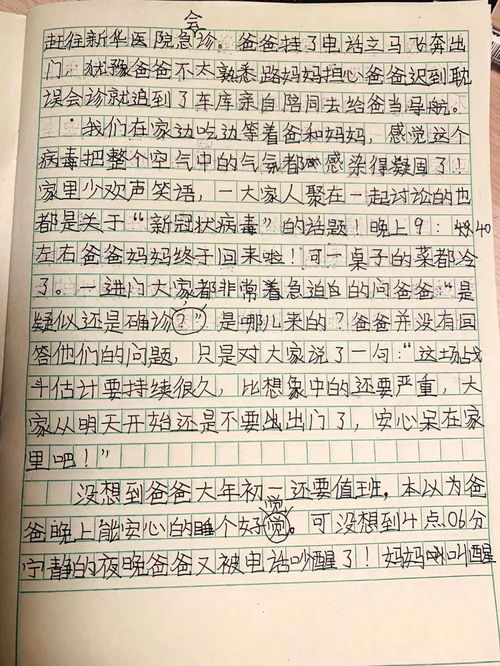 会
赶往新华医院急诊。爸爸挂了电话立马飞奔出
门。犹豫爸爸不太熟悉路妈妈担心爸爸迟到耽
误会诊就追到了车库亲自陪同去给爸当导航。
我们在家边吃边等着爸和妈妈，感觉这个
病毒把整个空气中的气氛都感染得凝固了！
家里少欢声笑语，一大家人聚在一起讨论的也
都是关于“新冠状病毒”的话题！晚上9：40
左右爸爸妈妈终于回来啦！可一桌子的菜都冷
了。一进门大家都非常着急迫的问爸爸“是
疑似还是确诊？”是哪儿来的？爸爸并没有回
答他们的问题，只是对大家说了一句：“这场战
斗估计要持续很久，比想象中的还要严重，大
家从明天开始还是不要出出门了，安心呆在家
里吧！”
没想到爸爸大年初一还要值班，本以为爸
觉
爸晚上能安心的睡个好觉。可没想到4点06分
宁静的夜晚爸爸又被电话吵醒了！妈妈叫醒